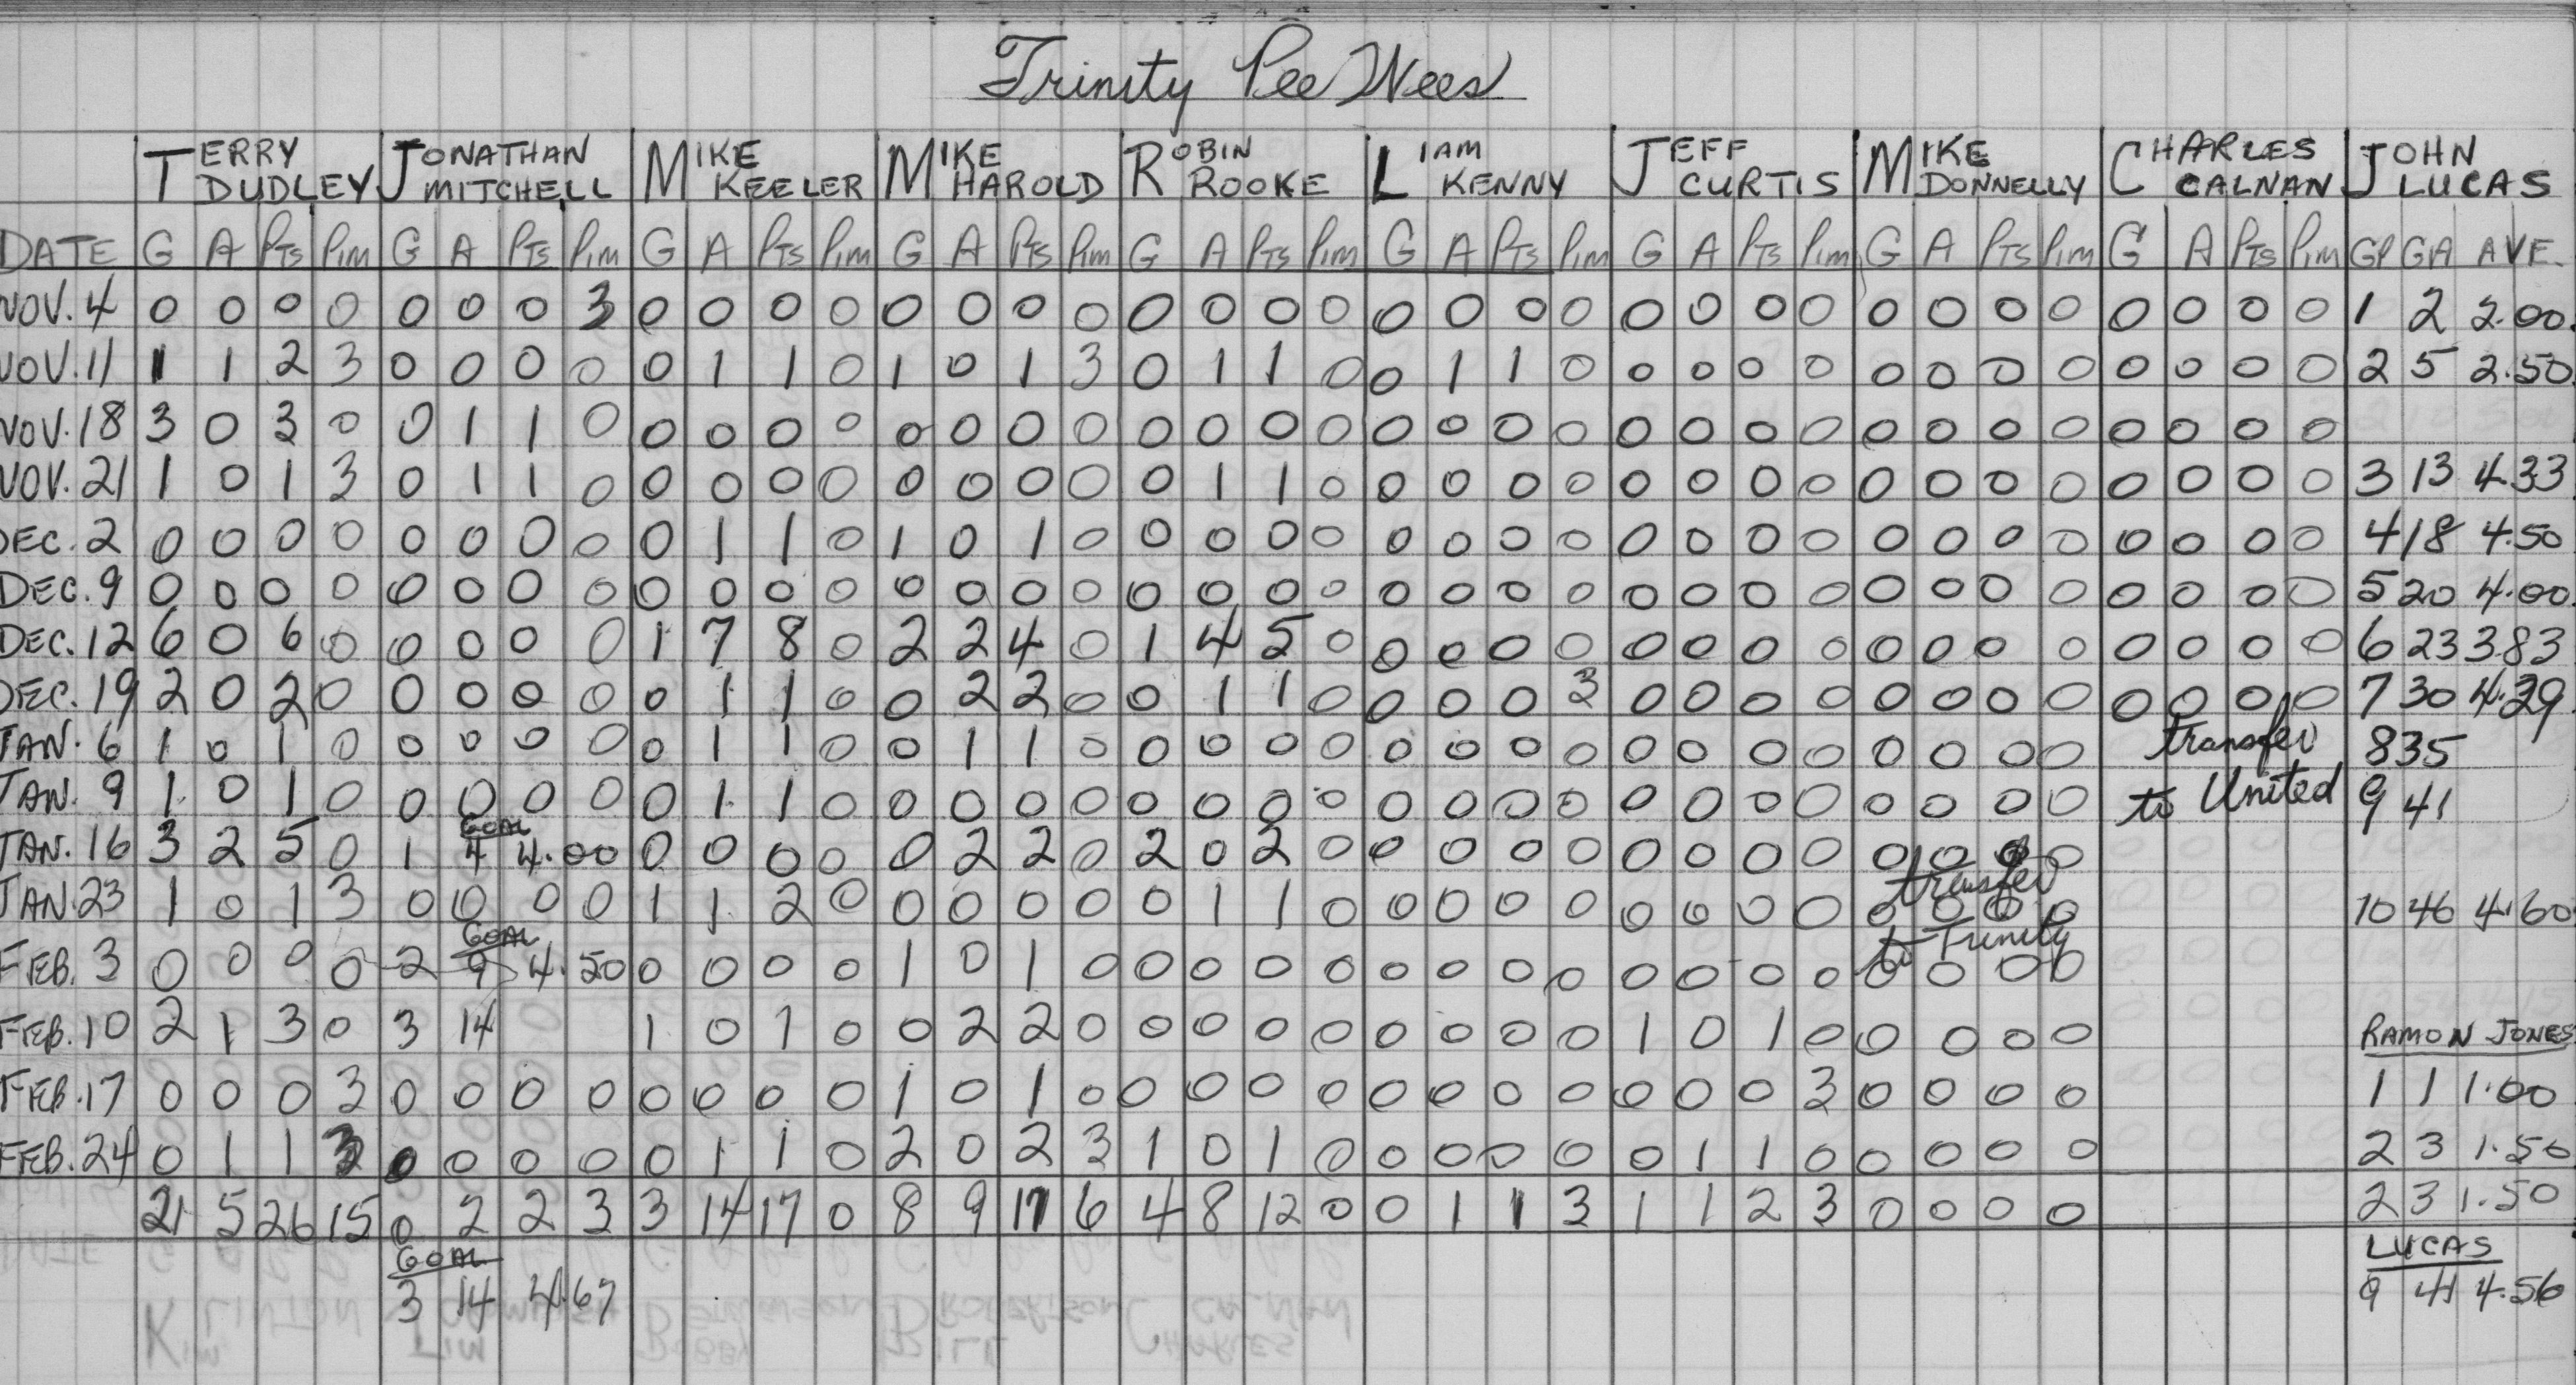 Trinity Pee Wees
TERRY DUDLEY JONATHAN MITCHELL MIKE KEELER MIKE HAROLD ROBIN ROOKE LIAM KENNY JEFF CURTIS MIKE DONNELLY CHARLES CALNAN JOHN LUCAS
DATE G A PTS PIM G A PTS PIM G A PTS PIM G A PTS PIM G A PTS PIM G A PTS PIM G A PTS PIM G A PTS PIM G A PTS PIM GP GA AVE.
NOV. 4 0 0 0 0 0 0 0 3 0 0 0 0 0 0 0 0 0 0 0 0 0 0 0 0 0 0 0 0 0 0 0 0 0 0 0 0 1 2 2.00
NOV. 11 1 1 2 3 0 0 0 0 0 1 1 0 1 0 1 3 0 1 1 0 0 1 1 0 0 0 0 0 0 0 0 0 0 0 0 0 2 5 2.50
NOV. 18 3 0 3 0 0 1 1 0 0 0 0 0 0 0 0 0 0 0 0 0 0 0 0 0 0 0 0 0 0 0 0 0 0 0 0 0
NOV. 21 1 0 1 3 0 1 1 0 0 0 0 0 0 0 0 0 0 1 1 0 0 0 0 0 0 0 0 0 0 0 0 0 0 0 0 0 3 13 4.33
DEC. 2 0 0 0 0 0 0 0 0 0 1 1 0 1 0 1 0 0 0 0 0 0 0 0 0 0 0 0 0 0 0 0 0 0 0 0 0 4 18 4.50
DEC. 9 0 0 0 0 0 0 0 0 0 0 0 0 0 0 0 0 0 0 0 0 0 0 0 0 0 0 0 0 0 0 0 0 0 0 0 0 5 20 4.00
DEC. 12 6 0 6 0 0 0 0 0 1 7 8 0 2 2 4 0 1 4 5 0 0 0 0 0 0 0 0 0 0 0 0 0 0 0 0 0 6 23 3.83
DEC. 19 2 0 2 0 0 0 0 0 0 1 1 0 0 2 2 0 0 1 1 0 0 0 0 3 0 0 0 0 0 0 0 0 0 0 0 0 7 30 4.29
JAN. 6 1 0 1 0 0 0 0 0 0 1 1 0 0 1 1 0 0 0 0 0 0 0 0 0 0 0 0 0 0 0 0 0 transfer 8 35
JAN. 9 1 0 1 0 0 0 0 0 0 1 1 0 0 0 0 0 0 0 0 0 0 0 0 0 0 0 0 0 0 0 0 0 to United 9 41
GOAL
JAN. 16 3 2 5 0 1 4 4.00 0 0 0 0 0 2 2 0 2 0 2 0 0 0 0 0 0 0 0 0 0 0 0 0
transfer
JAN. 23 1 0 1 3 0 0 0 0 1 1 2 0 0 0 0 0 0 1 1 0 0 0 0 0 0 0 0 0 0 0 0 0 10 46 4.60
GOAL
to Trinity
FEB. 3 0 0 0 0 2 9 4.50 0 0 0 0 1 0 1 0 0 0 0 0 0 0 0 0 0 0 0 0 0 0 0 0
FEB. 10 2 1 3 0 3 14 1 0 1 0 0 2 2 0 0 0 0 0 0 0 0 0 1 0 1 0 0 0 0 0 RAMON JONES
FEB. 17 0 0 0 3 0 0 0 0 0 0 0 0 1 0 1 0 0 0 0 0 0 0 0 0 0 0 0 3 0 0 0 0 1 1 1.00
FEB. 24 0 1 1 3 0 0 0 0 0 1 1 0 2 0 2 3 1 0 1 0 0 0 0 0 0 1 1 0 0 0 0 0 2 3 1.50
21 5 26 15 0 2 2 3 3 14 17 0 8 9 17 6 4 8 12 0 0 1 1 3 1 1 2 3 0 0 0 0 2 3 1.50
GOAL LUCAS
3 14 4.67 9 41 4.56